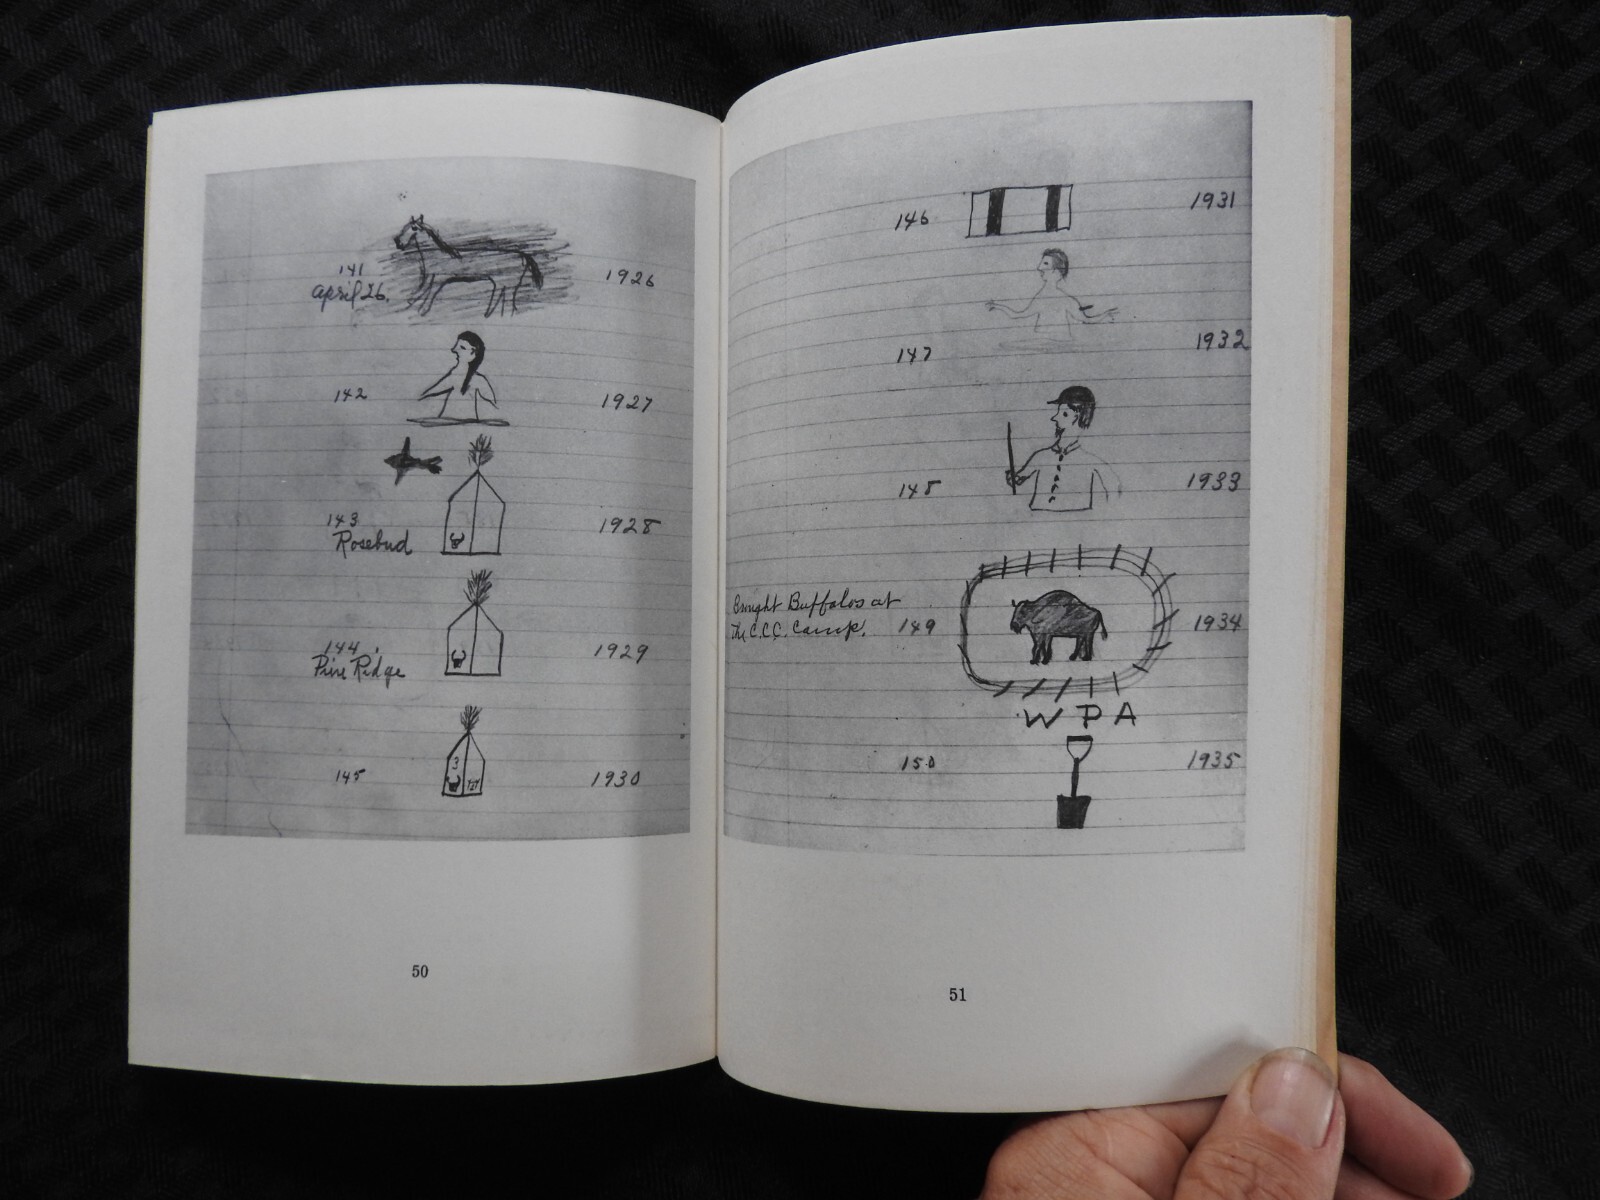 141 1926
April 26.
142 1927
143 1928
Rosebud
144. 1929
Pine Ridge
3
727
145 1930
50
146 1931
147 1932
148 1933
Brought Buffalos at
The C.C.C. Camp. 149 1934
WPA
150 1935
51